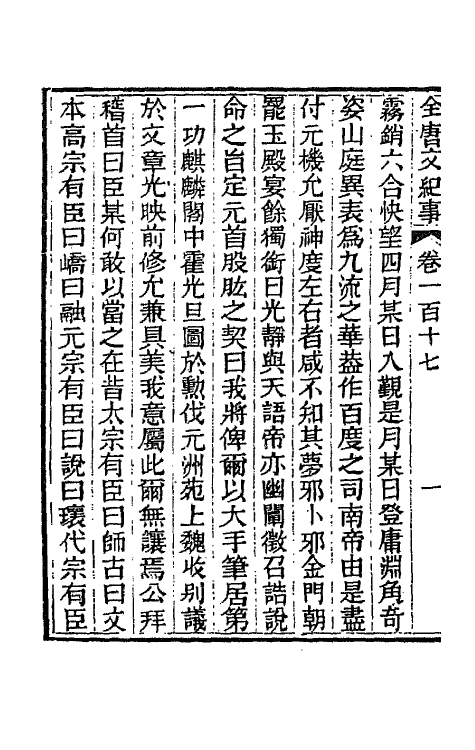 全唐文紀事 卷一百十七 一
霧銷六合快望四月某日入覲是月某日登庸淵角奇
姿山庭異表爲九流之華葢作百度之司南帝由是盡
付元機允厭神度左右者咸不知其夢邪卜邪金門朝
罷玉殿宴餘獨銜日光靜與天語帝亦幽闡徵召誥說
命之旨定元首股肱之契曰我將俾爾以大手筆居第
一功麒麟閣中霍光旦圖於勲伐元洲苑上魏收别議
於文章光映前修允兼具美我意屬此爾無讓焉公拜
稽首曰臣某何敢以當之在昔太宗有臣曰師古曰文
本高宗有臣曰嶠曰融元宗有臣曰說曰瓌代宗有臣